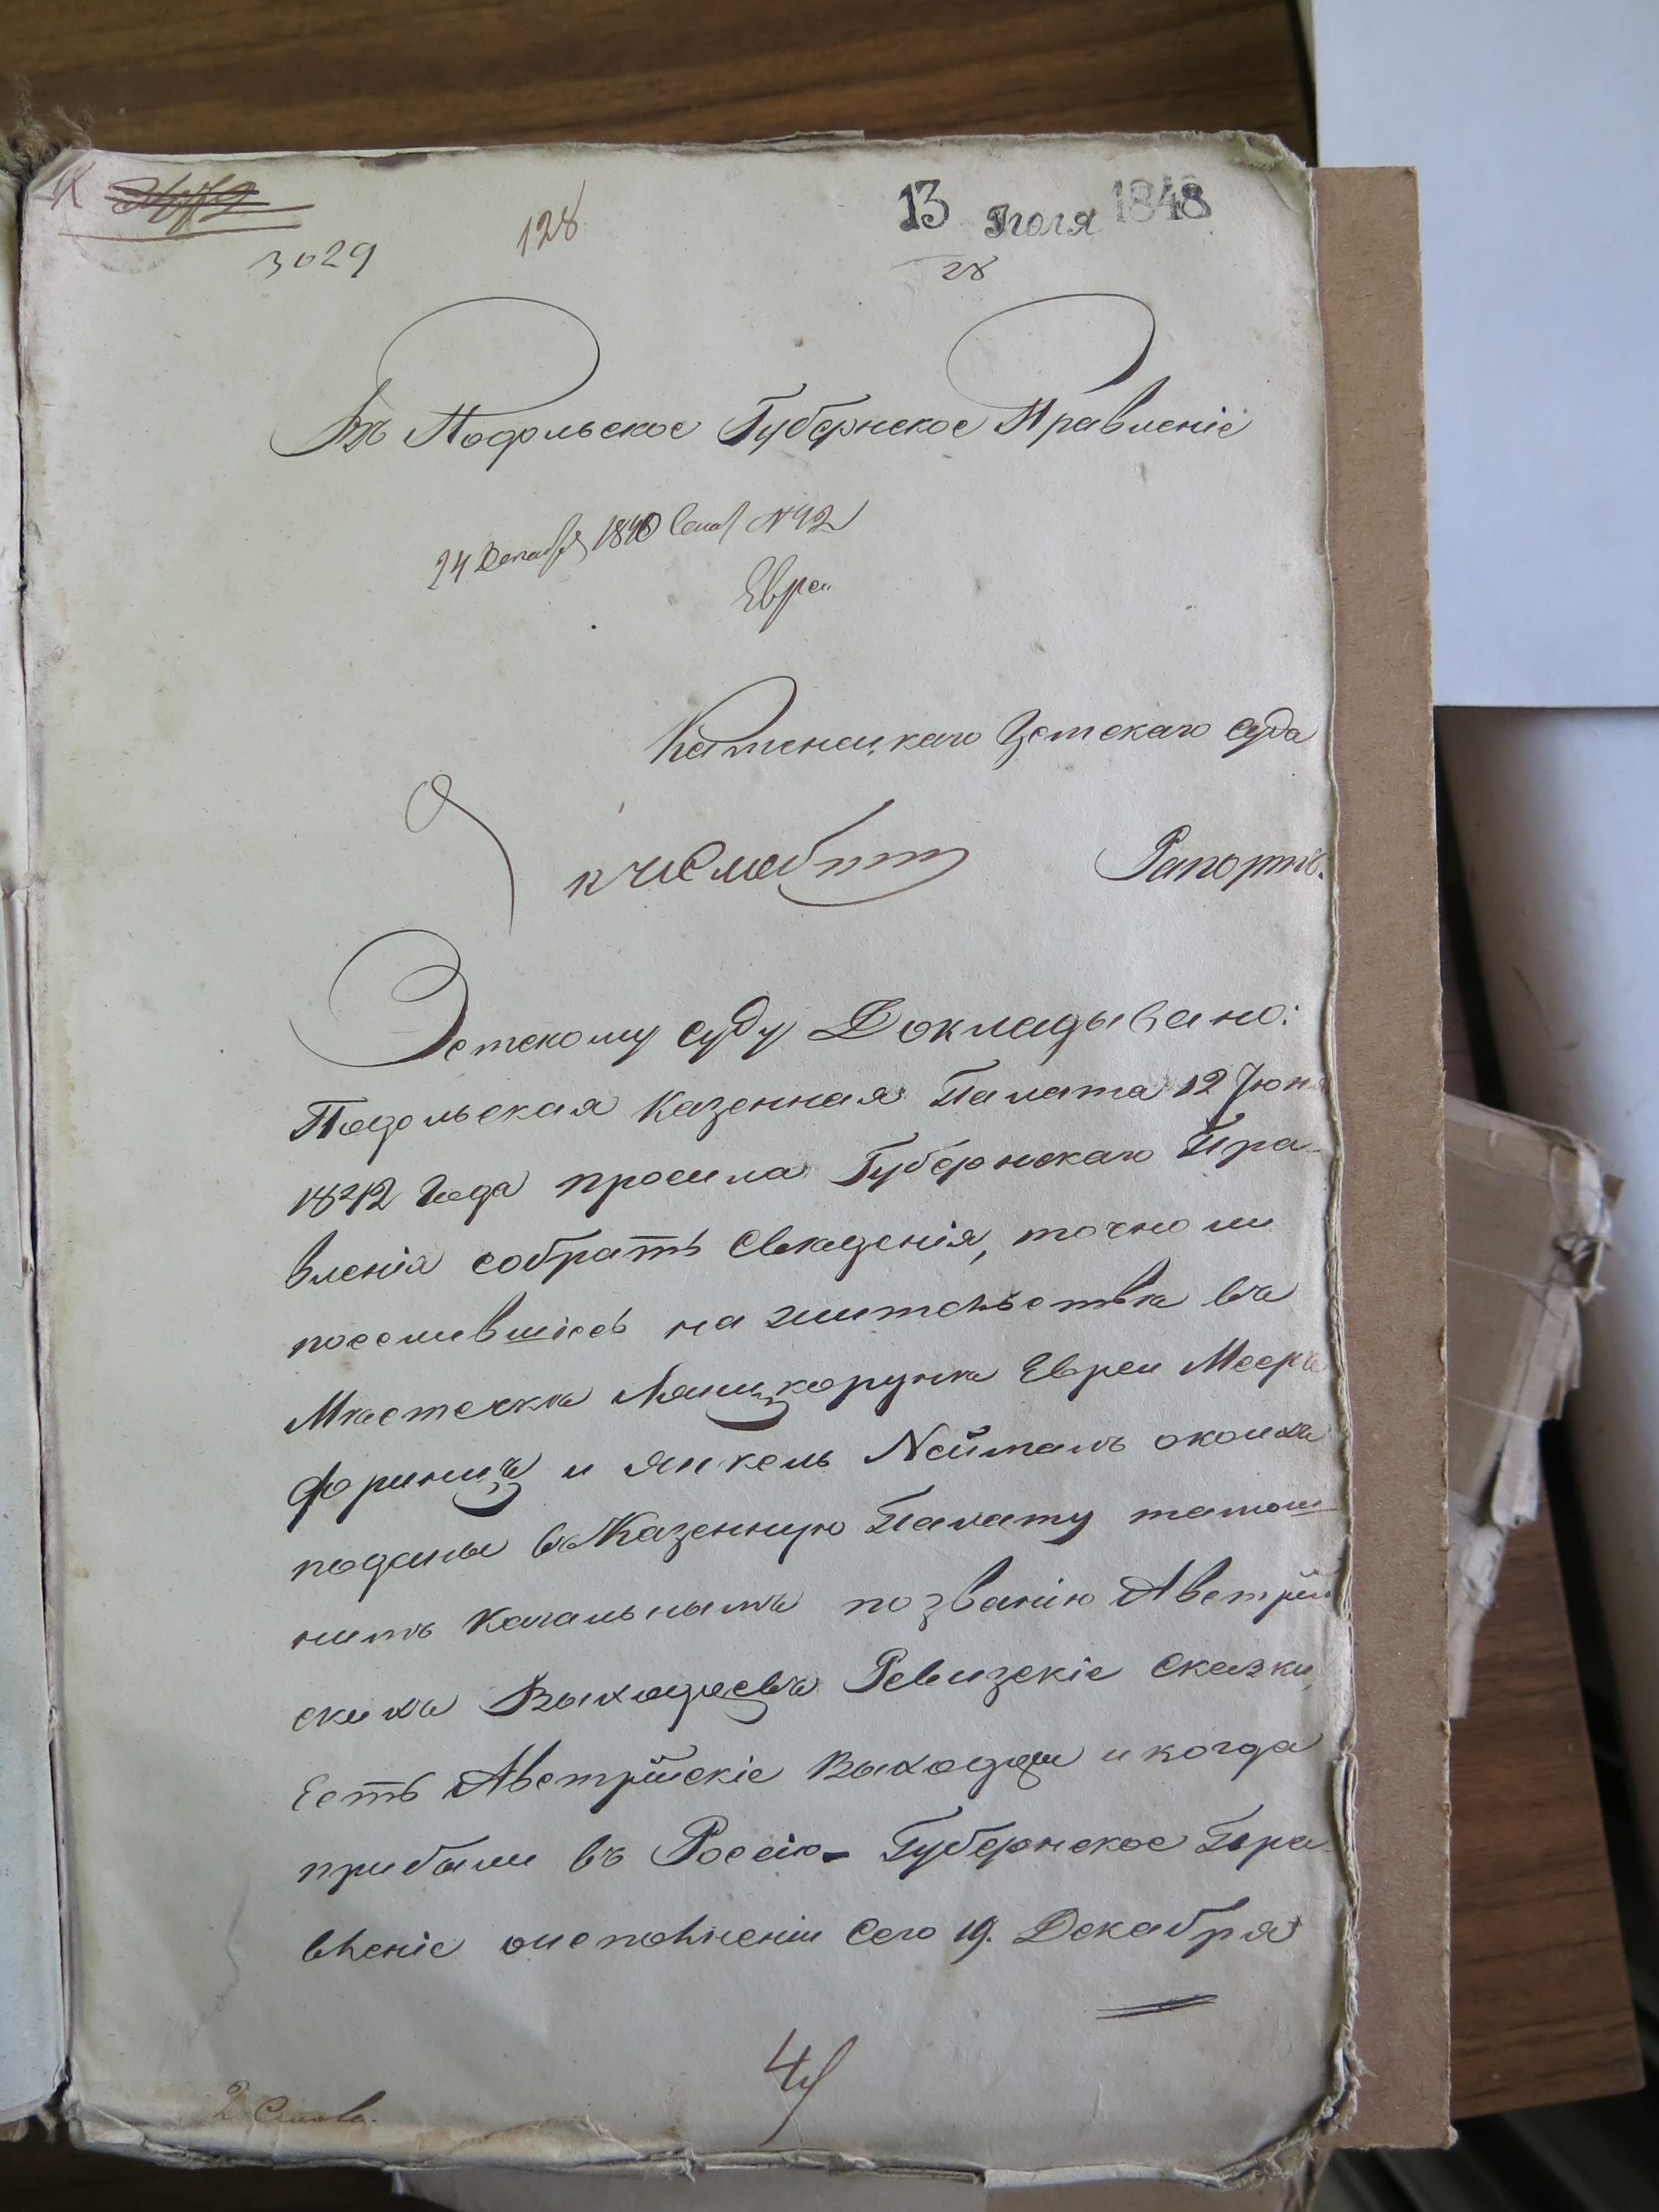 3029
128
13 Іюля 1848
Въ Подольское Губернское Правленіе
24 Декабря 1840 N 42
Евреи
Каменецкаго Земскаго Суда
Рапортъ.
Земскому суду Докладывано:
Подольская Казенная Палата 12 Іюня
1842 Года просила Губернскаго Пра-
вленія собрать Сведенія, точно ли
поселившіесь на жительства въ
Мѣстечкѣ Лянцкорунѣ Евреи Мееръ
Форинцъ и Янкель Нейманъ о коихъ
поданы въ Казенную Палату тамош-
нимъ Кагальнымъ по званію Австрій
скихъ Выходцевъ Ревизскіе Сказки,
Есть Австрійскіе Выходцы и когда
прибыли въ Россію - Губернское Пра-
вленіе о исполненіи Сего 19. Декабря